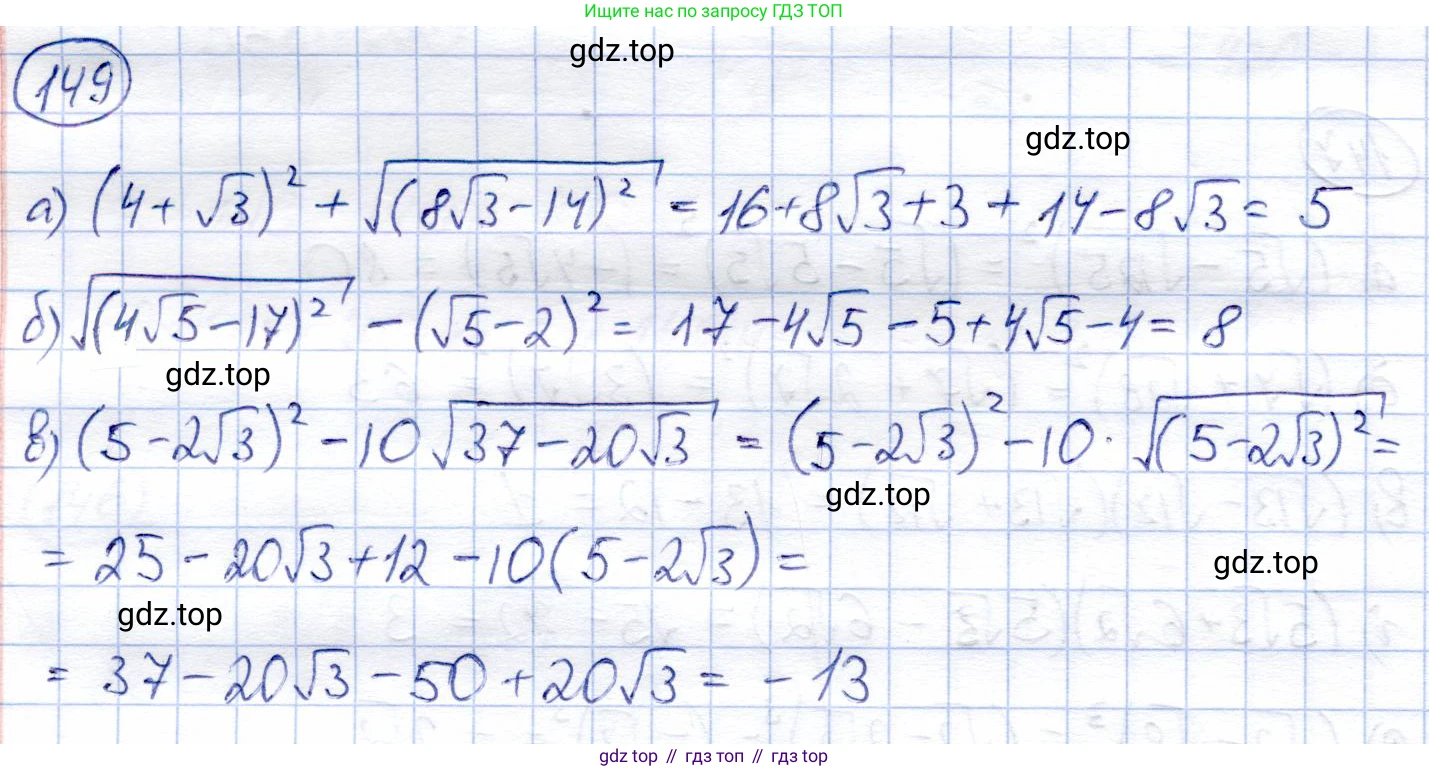 Ищите нас по запросу ГДЗ ТОП
gdz.top
149
gdz.top
а) (4+√3)² + √((8√3-14)²) = 16+8√3+3+14-8√3 = 5
б) √((4√5-17)²) - (√5-2)² = 17-4√5-5+4√5-4 = 8
gdz.top
в) (5-2√3)² - 10√(37-20√3) = (5-2√3)² - 10·√((5-2√3)²) =
gdz.top
= 25-20√3+12-10(5-2√3) =
gdz.top
gdz.top
= 37-20√3-50+20√3 = -13
gdz top // гдз топ // gdz top